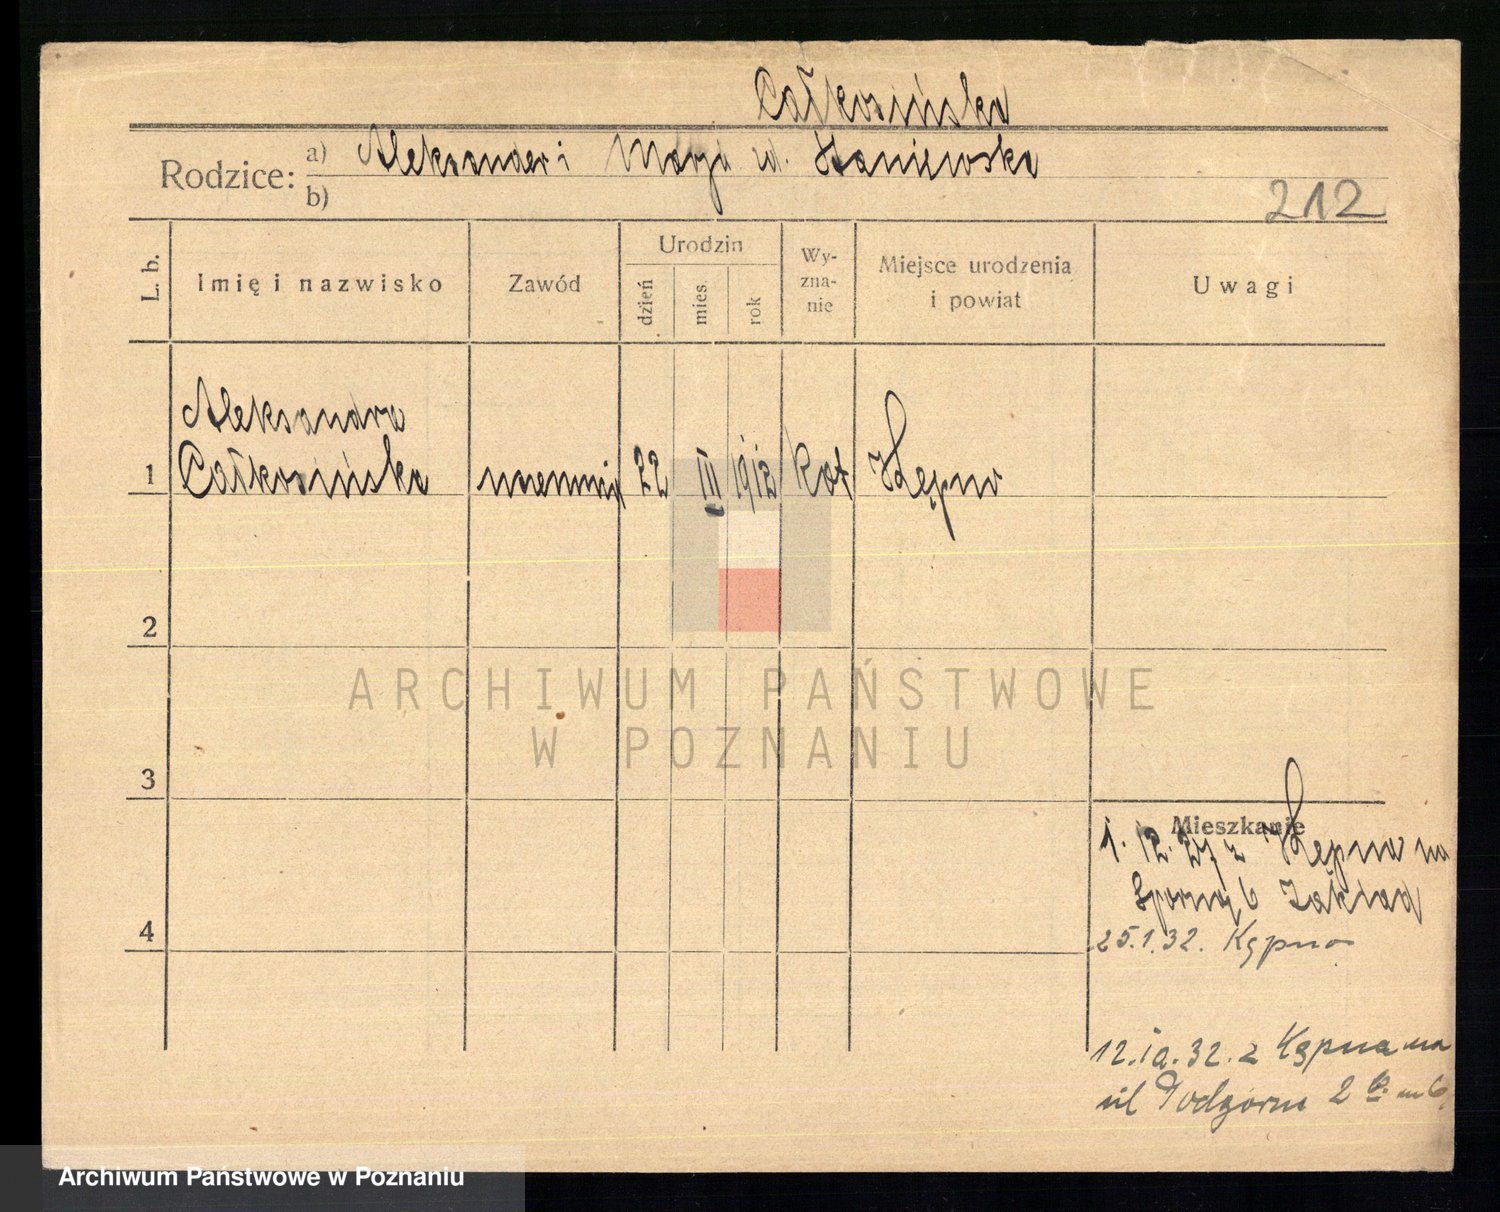 Całkosińska
Rodzice: a) Aleksander i Marja zd. Staniewska
b)
212
L. b. Imię i nazwisko Zawód Urodzin dzień mies. rok Wyznanie Miejsce urodzenia i powiat Uwagi
Aleksandra
1 Całkosińska 22 III 1912 kat Kępno
2
ARCHIWUM PAŃSTWOWE
W POZNANIU
3
Mieszkanie
1. 12. 27 z Kępna na
6 Zakład
4
25.1.32. Kępno
32. z Kępna na
ul Podgórne 2
Archiwum Państwowe w Poznaniu